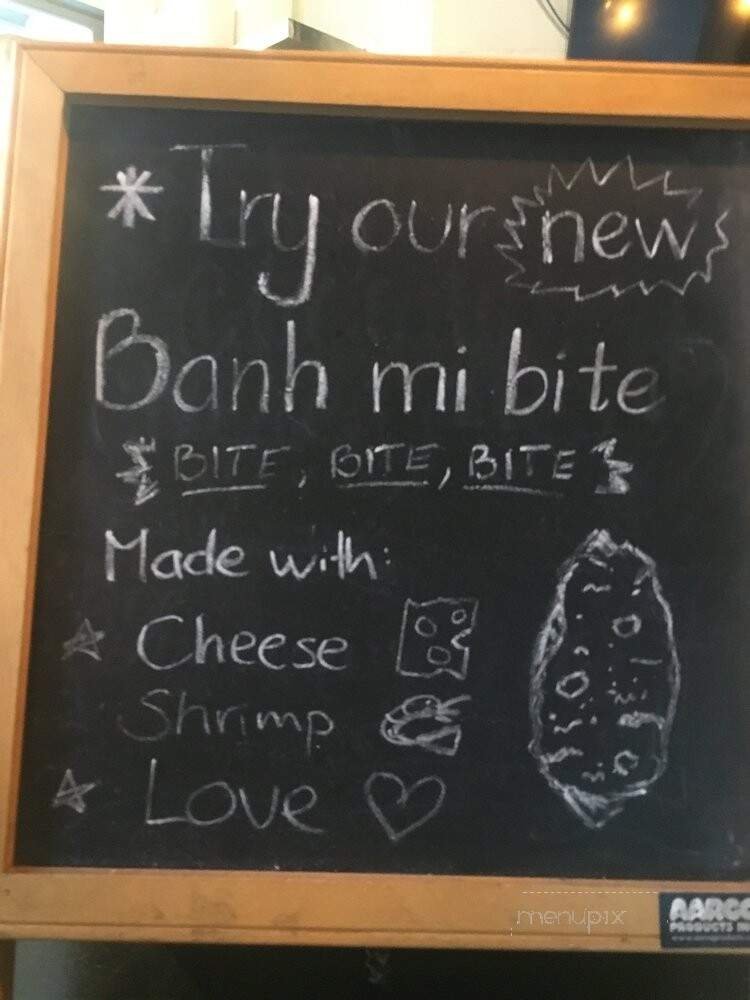 * Try our new
Banh mi bite
BITE, BITE, BITE
Made with:
☆ Cheese
Shrimp
☆ Love ♡
menupix
AARCO
PRODUCTS IN